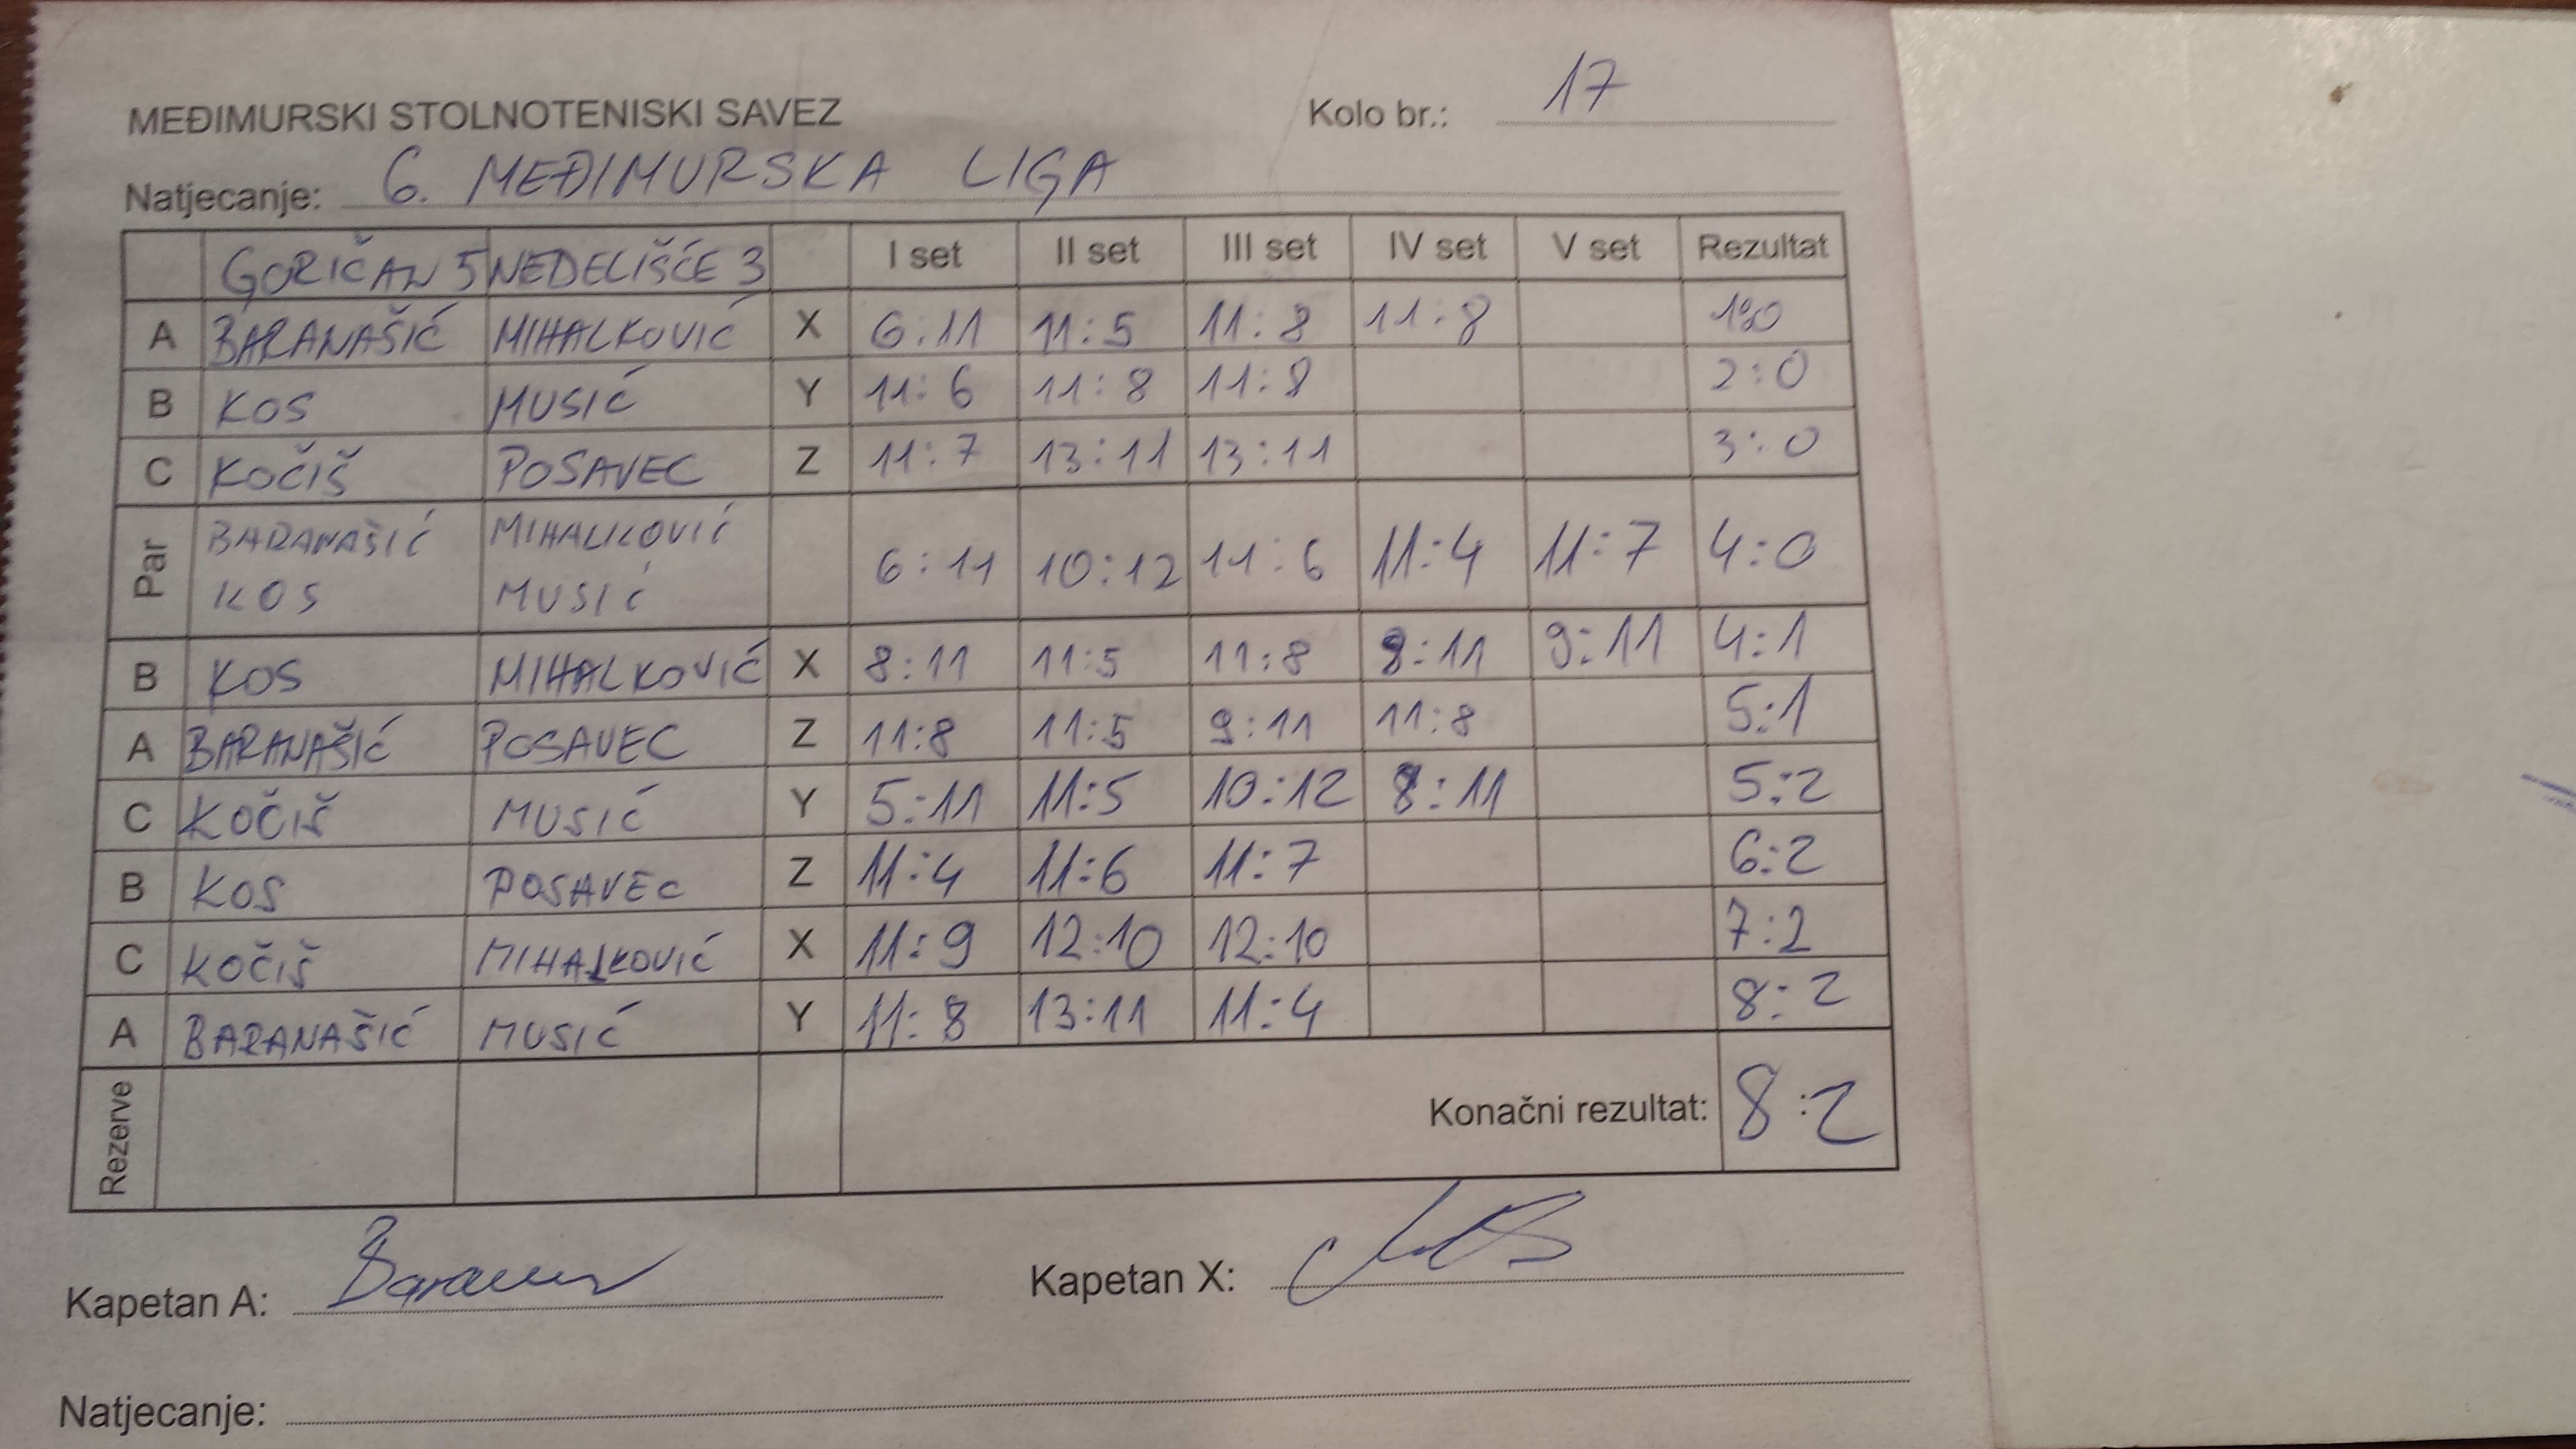 MEĐIMURSKI STOLNOTENISKI SAVEZ Kolo br.: 17
Natjecanje: 6. MEĐIMURSKA LIGA
GORIČAN 5 NEDELIŠĆE 3 I set II set III set IV set V set Rezultat
A BARANAŠIĆ MIHALKOVIĆ X 6:11 11:5 11:8 11:8 1:0
B KOS MUSIĆ Y 11:6 11:8 11:8 2:0
C KOČIŠ POSAVEC Z 11:7 13:11 13:11 3:0
Par BARANAŠIĆ KOS MIHALKOVIĆ MUSIĆ 6:11 10:12 11:6 11:4 11:7 4:0
B KOS MIHALKOVIĆ X 8:11 11:5 11:8 8:11 9:11 4:1
A BARANAŠIĆ POSAVEC Z 11:8 11:5 9:11 11:8 5:1
C KOČIŠ MUSIĆ Y 5:11 11:5 10:12 8:11 5:2
B KOS POSAVEC Z 11:4 11:6 11:7 6:2
C KOČIŠ MIHALKOVIĆ X 11:9 12:10 12:10 7:2
A BARANAŠIĆ MUSIĆ Y 11:8 13:11 11:4 8:2
Rezerve Konačni rezultat: 8:2
Kapetan A: Kapetan X:
Natjecanje: